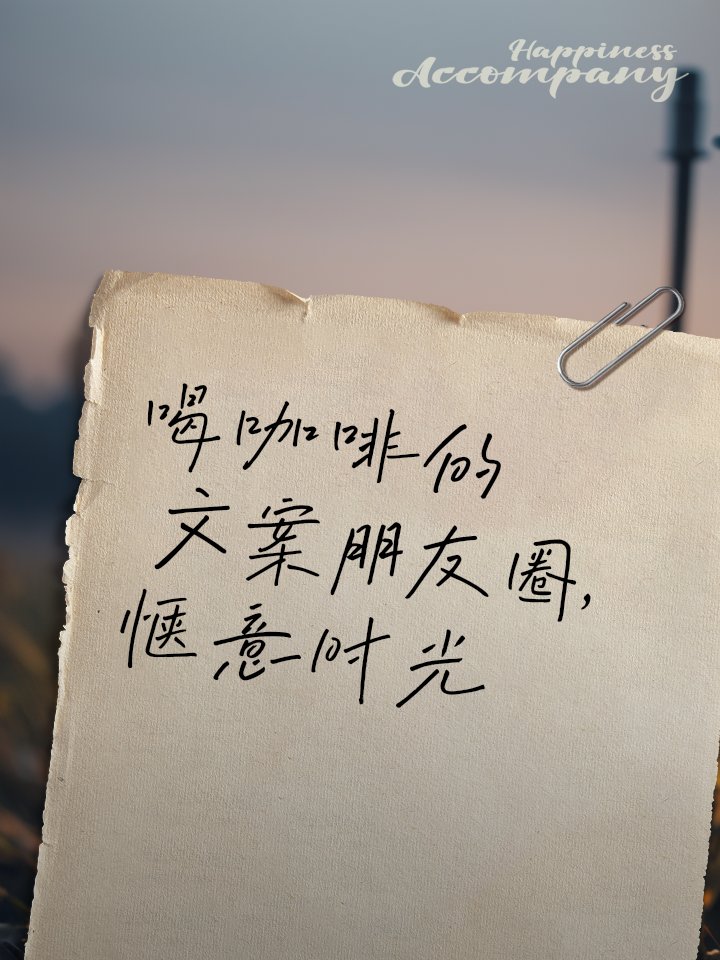 Happiness
Accompany
喝咖啡的
文案朋友圈，
惬意时光